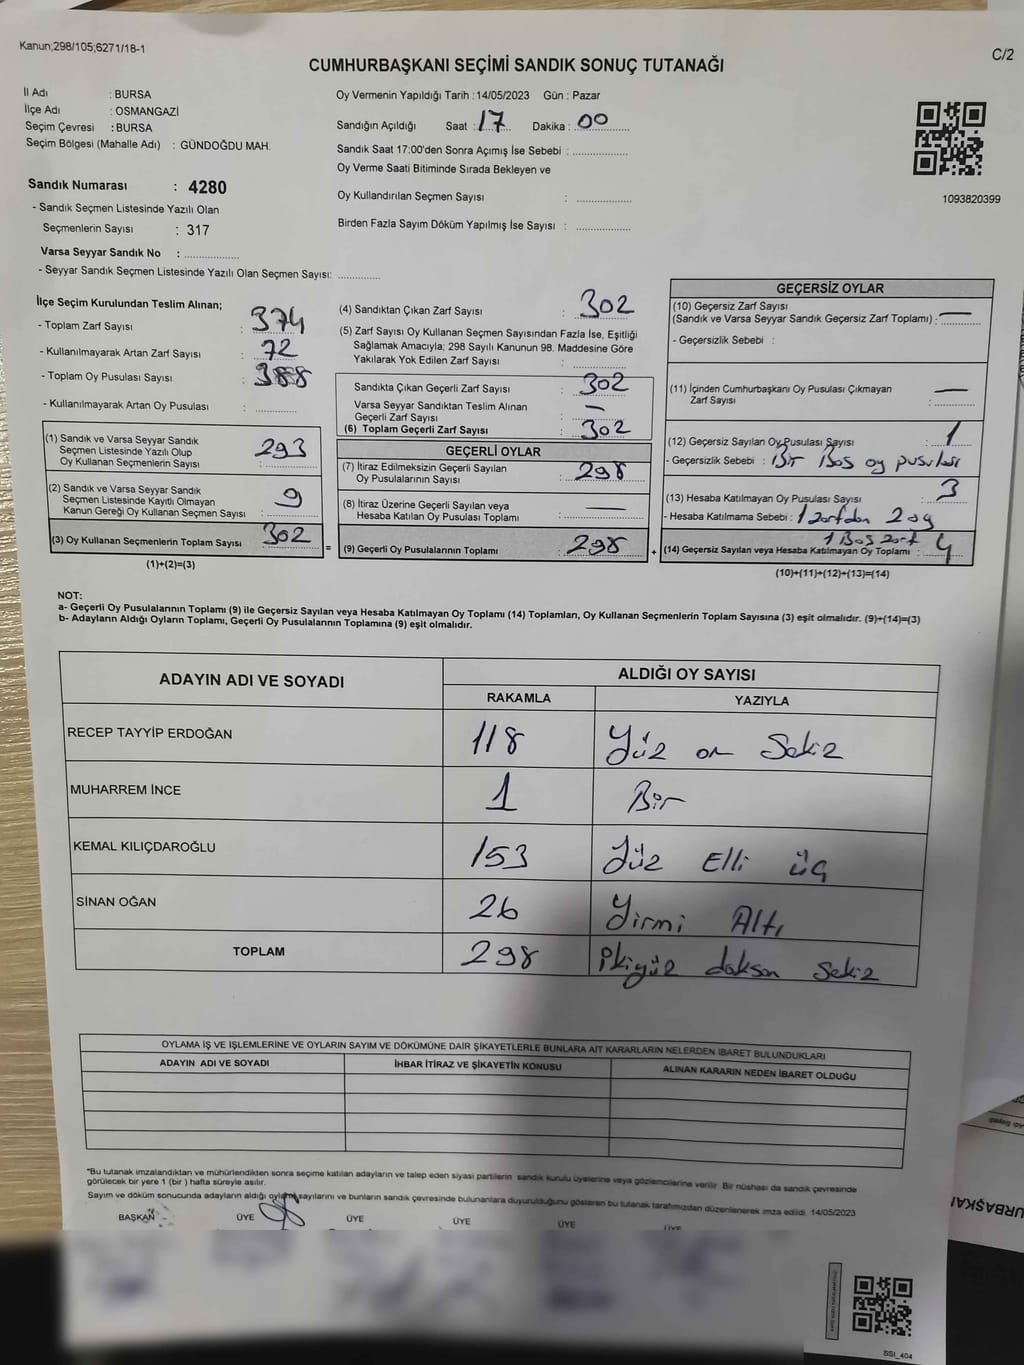 Kanun;298/105;6271/18-1
C/2
CUMHURBAŞKANI SEÇİMİ SANDIK SONUÇ TUTANAĞI
İl Adı : BURSA
İlçe Adı : OSMANGAZİ
Seçim Çevresi : BURSA
Seçim Bölgesi (Mahalle Adı) : GÜNDOĞDU MAH.
Sandık Numarası : 4280
- Sandık Seçmen Listesinde Yazılı Olan
Seçmenlerin Sayısı : 317
Varsa Seyyar Sandık No :
- Seyyar Sandık Seçmen Listesinde Yazılı Olan Seçmen Sayısı:
Oy Vermenin Yapıldığı Tarih : 14/05/2023 Gün : Pazar
Sandığın Açıldığı Saat : 17 Dakika : 00
Sandık Saat 17:00'den Sonra Açımış İse Sebebi :
Oy Verme Saati Bitiminde Sırada Bekleyen ve
Oy Kullandırılan Seçmen Sayısı :
Birden Fazla Sayım Döküm Yapılmış İse Sayısı :
1093820399
İlçe Seçim Kurulundan Teslim Alınan;
- Toplam Zarf Sayısı : 374
- Kullanılmayarak Artan Zarf Sayısı : 72
- Toplam Oy Pusulası Sayısı : 388
- Kullanılmayarak Artan Oy Pusulası :
(1) Sandık ve Varsa Seyyar Sandık
Seçmen Listesinde Yazılı Olup
Oy Kullanan Seçmenlerin Sayısı : 293
(2) Sandık ve Varsa Seyyar Sandık
Seçmen Listesinde Kayıtlı Olmayan
Kanun Gereği Oy Kullanan Seçmen Sayısı : 9
(3) Oy Kullanan Seçmenlerin Toplam Sayısı : 302
(1)+(2)=(3)
(4) Sandıktan Çıkan Zarf Sayısı : 302
(5) Zarf Sayısı Oy Kullanan Seçmen Sayısından Fazla İse, Eşitliği
Sağlamak Amacıyla; 298 Sayılı Kanunun 98. Maddesine Göre
Yakılarak Yok Edilen Zarf Sayısı :
Sandıkta Çıkan Geçerli Zarf Sayısı : 302
Varsa Seyyar Sandıktan Teslim Alınan
Geçerli Zarf Sayısı : —
(6) Toplam Geçerli Zarf Sayısı : 302
GEÇERLİ OYLAR
(7) İtiraz Edilmeksizin Geçerli Sayılan
Oy Pusulalarının Sayısı : 298
(8) İtiraz Üzerine Geçerli Sayılan veya
Hesaba Katılan Oy Pusulası Toplamı : —
= (9) Geçerli Oy Pusulalarının Toplamı : 298 +
GEÇERSİZ OYLAR
(10) Geçersiz Zarf Sayısı
(Sandık ve Varsa Seyyar Sandık Geçersiz Zarf Toplamı) : —
- Geçersizlik Sebebi :
(11) İçinden Cumhurbaşkanı Oy Pusulası Çıkmayan
Zarf Sayısı : —
(12) Geçersiz Sayılan Oy Pusulası Sayısı : 1
- Geçersizlik Sebebi : Bir Boş oy pusulası
(13) Hesaba Katılmayan Oy Pusulası Sayısı 3
- Hesaba Katılmama Sebebi : 1 zarfdan 2 oy
1 Boş zarf
(14) Geçersiz Sayılan veya Hesaba Katılmayan Oy Toplamı : 4
(10)+(11)+(12)+(13)=(14)
NOT:
a- Geçerli Oy Pusulalarının Toplamı (9) ile Geçersiz Sayılan veya Hesaba Katılmayan Oy Toplamı (14) Toplamları, Oy Kullanan Seçmenlerin Toplam Sayısına (3) eşit olmalıdır. (9)+(14)=(3)
b- Adayların Aldığı Oyların Toplamı, Geçerli Oy Pusulalarının Toplamına (9) eşit olmalıdır.
ADAYIN ADI VE SOYADI ALDIĞI OY SAYISI
RAKAMLA YAZIYLA
RECEP TAYYİP ERDOĞAN 118 Yüz on Sekiz
MUHARREM İNCE 1 Bir
KEMAL KILIÇDAROĞLU 153 Yüz Elli üç
SİNAN OĞAN 26 Yirmi Altı
TOPLAM 298 ikiyüz doksan sekiz
OYLAMA İŞ VE İŞLEMLERİNE VE OYLARIN SAYIM VE DÖKÜMÜNE DAİR ŞİKAYETLERLE BUNLARA AİT KARARLARIN NELERDEN İBARET BULUNDUKLARI
ADAYIN ADI VE SOYADI İHBAR İTİRAZ VE ŞİKAYETİN KONUSU ALINAN KARARIN NEDEN İBARET OLDUĞU
*Bu tutanak imzalandıktan ve mühürlendikten sonra seçime katılan adayların ve talep eden siyasi partilerin sandık kurulu üyelerine veya gözlemcilerine verilir. Bir nüshası da sandık çevresinde
görülecek bir yere 1 (bir ) hafta süreyle asılır.
Sayım ve döküm sonucunda adayların aldığı oyların sayılarını ve bunların sandık çevresinde bulunanlara duyurulduğunu gösteren bu tutanak tarafımızdan düzenlenerek imza edildi. 14/05/2023
BAŞKAN ÜYE ÜYE ÜYE ÜYE ÜYE
SSI_404